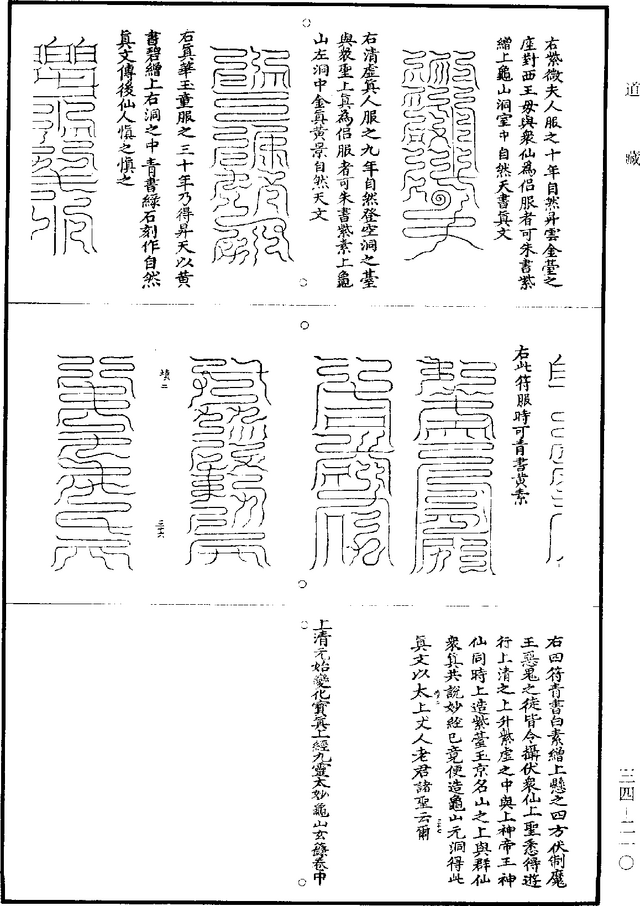 道藏
右紫微夫人服之十年自然昇雲金臺之
座對西王母與衆仙爲侶服者可朱書紫
繒上龜山洞室中自然天書真文
右清虛真人服之九年自然登空洞之臺
與衆聖上真爲侶服者可朱書紫素上龜
山左洞中金真黃景自然天文
右真華玉童服之三十年乃得昇天以黃
書碧繒上右洞之中青書綠石刻作自然
真文傳後仙人慎之慎之
右此符服時可青書黃素
右四符青書白素繒上懸之四方伏制魔
王惡鬼之徒皆令攝伏衆仙上聖悉得遊
行上清之上升紫虛之中與上神帝王神
仙同時上造紫臺玉京名山之上與群仙
衆真共說妙經已竟便造龜山元洞得此
真文以太上丈人老君諸聖云爾
上清元始變化寶真上經九靈太妙龜山玄籙卷中
三四-二一〇